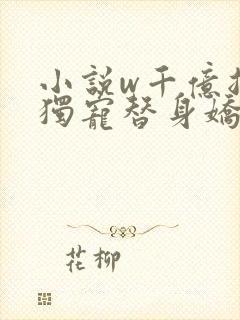 小說w千億
獨寵替身嬌
花柳